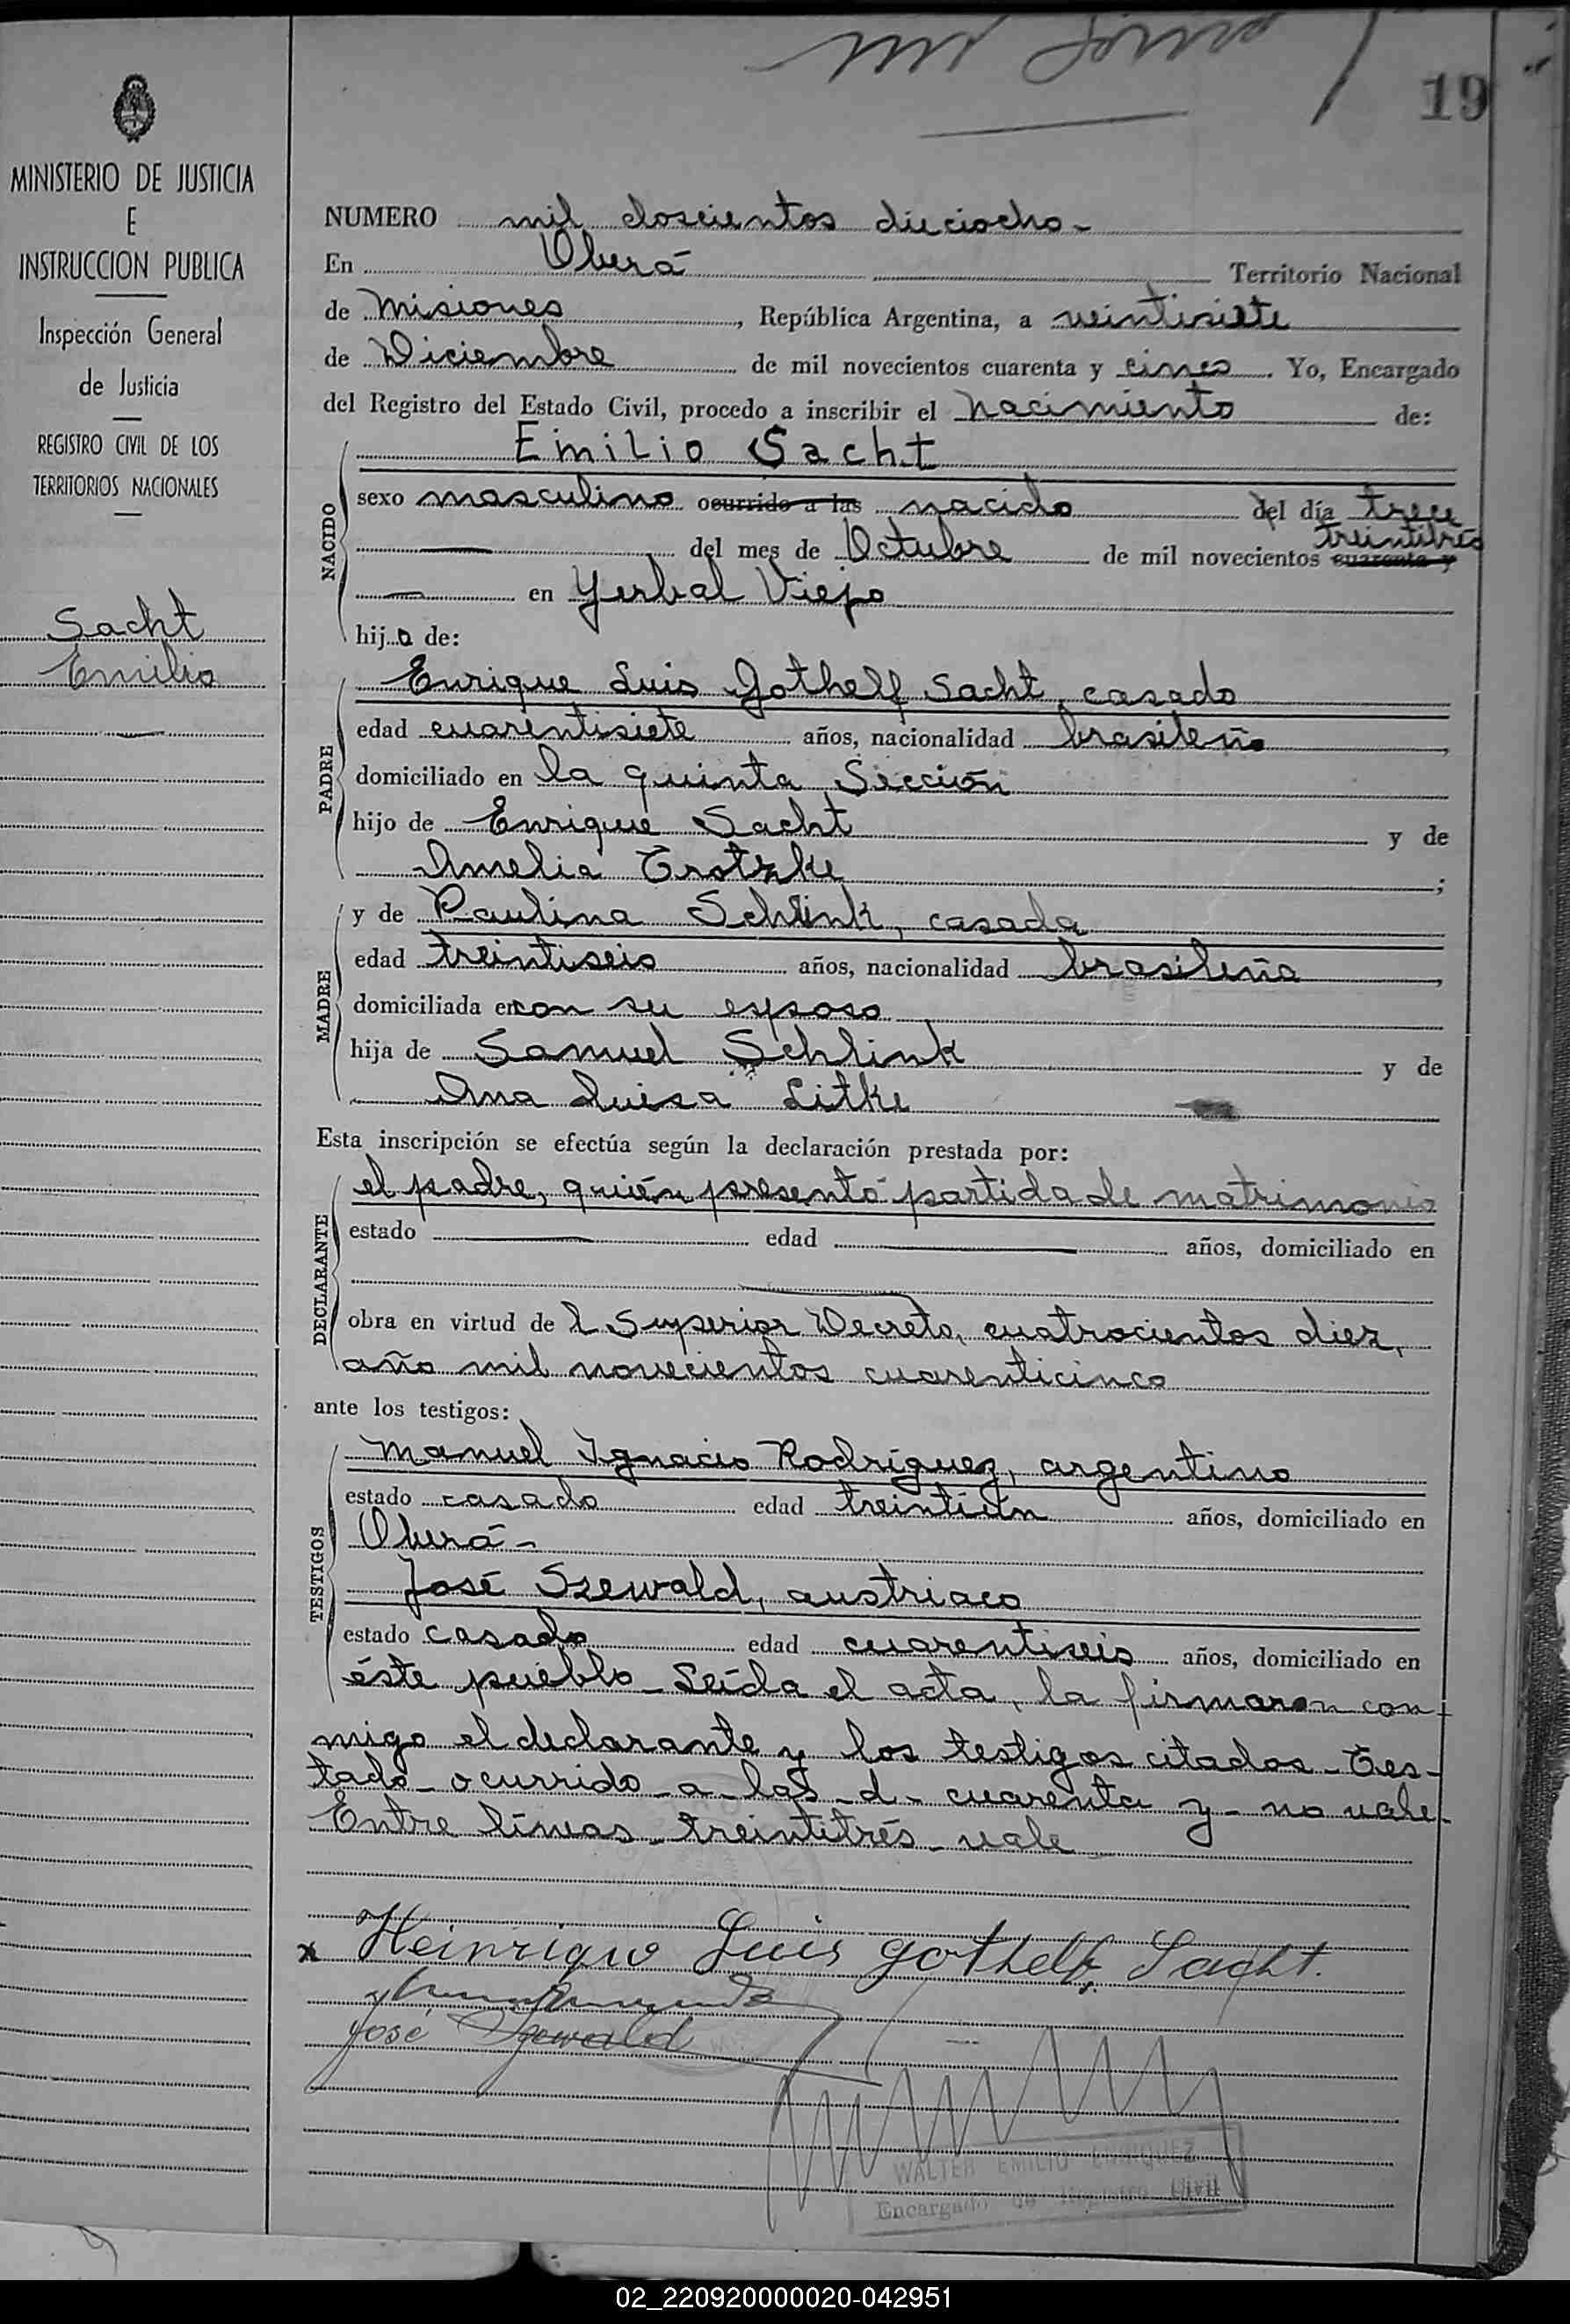 19
MINISTERIO DE JUSTICIA
E
INSTRUCCION PUBLICA
Inspección General
de Justicia
REGISTRO CIVIL DE LOS
TERRITORIOS NACIONALES
Sacht
Emilio
NUMERO mil doscientos dieciocho-
En Oberá Territorio Nacional
de Misiones, República Argentina, a veintisiete
de Diciembre de mil novecientos cuarenta y cinco. Yo, Encargado
del Registro del Estado Civil, procedo a inscribir el nacimiento de:
NACIDO
Emilio Sacht
sexo masculino ocurrido a las nacido del día trece
treintitrés
del mes de Octubre de mil novecientos cuarenta y
en Yerbal Viejo
hijo de:
PADRE
Enrique Luis Gothelf Sacht, casado
edad cuarentisiete años, nacionalidad brasileño,
domiciliado en la quinta Sección
hijo de Enrique Sacht y de
Amelia Trotzke;
MADRE
y de Paulina Schlink, casada
edad treintiseis años, nacionalidad brasileña,
domiciliada en con su esposo
hija de Samuel Schlink y de
Ana Luisa Litke
Esta inscripción se efectúa según la declaración prestada por:
DECLARANTE
el padre, quién presentó partida de matrimonio
estado edad años, domiciliado en
obra en virtud de l Superior Decreto, cuatrocientos diez,
año mil novecientos cuarenticinco
ante los testigos:
TESTIGOS
Manuel Ignacio Rodríguez, argentino
estado casado edad treintiún años, domiciliado en
Oberá-
José Szewald, austriaco
estado casado edad cuarentiseis años, domiciliado en
éste pueblo- Leída el acta, la firmaron con-
migo el declarante y los testigos citados- Tes-
tado- ocurrido- a- las- d- cuarenta y- no vale-
Entre líneas- treintitrés- vale
x Heinrique Luis Gothelf Sacht.
José Szewald
WALTER EMILIO ENRIQUEZ
Encargado de Registro Civil
02_220920000020-042951